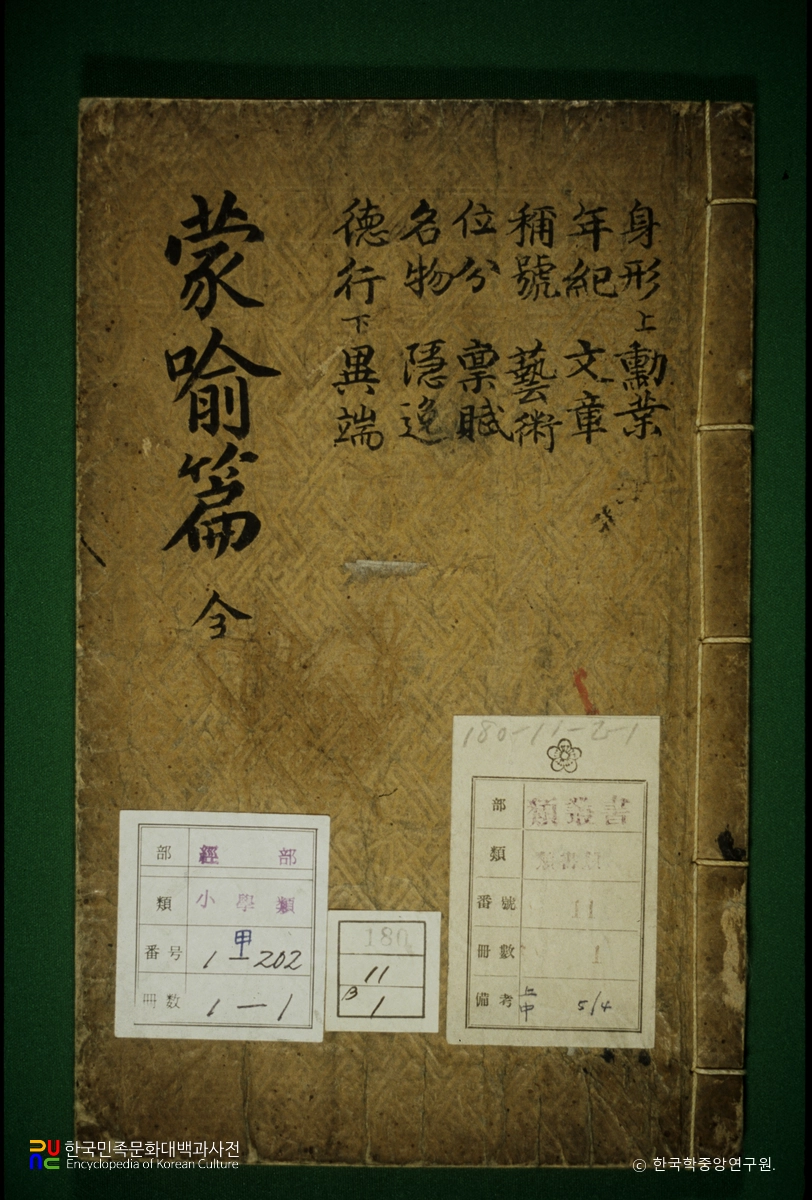 身形上勳業
年紀 文章
稱號 藝術
位分 稟賦
名物 隱逸
德行下異端
蒙喩篇 全
180-11-2-1
部 類叢書
類
番號 11
冊數 1
備考 上中 5/4
部 經部
類 小學類
番号 甲 1-202
冊数 1-1
180
11
B 1
한국민족문화대백과사전
Encyclopedia of Korean Culture
ⓒ 한국학중앙연구원.